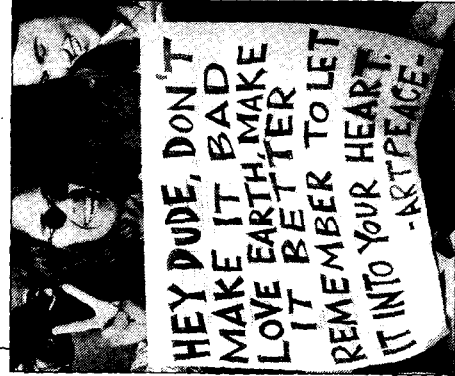 HEY DUDE, DON'T
MAKE IT BAD
LOVE EARTH, MAKE
IT BETTER
REMEMBER TO LET
IT INTO YOUR HEART.
-ARTPEACE-